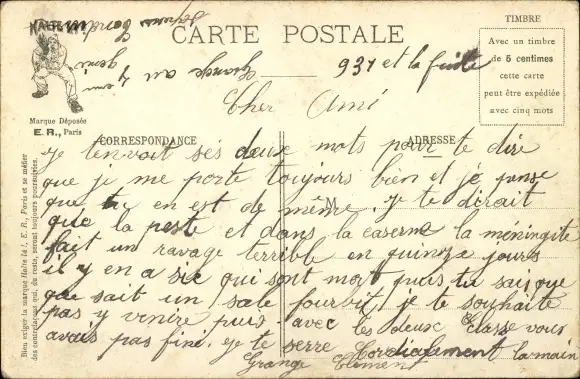 CARTE POSTALE
TIMBRE
Avec un timbre
de 5 centimes
cette carte
peut être expédiée
avec cinq mots
HALTE LA!
Marque Déposée
E. R., Paris
Bien exiger la marque Halte là !, E. R., Paris et se méfier
des contrefaçons qui, du reste, seront toujours poursuivies.
CORRESPONDANCE
ADRESSE
M
Grange au 7 eme genie
931 et la fuite
Cher Ami
Je tenvoit ses deux mots pour te dire
que je me porte toujours bien et je pense
que tu en est de même. Je te dirait
que la peste et dans la caserne la méningite
fait un ravage terrible en quinze jours
il y en a six qui sont mort puis tu sais que
que sait un sale fourvit, je te souhaite
pas y venire puis avec les deux classe vous
avais pas fini. Je te serre Cordialement la main
Grange Clement